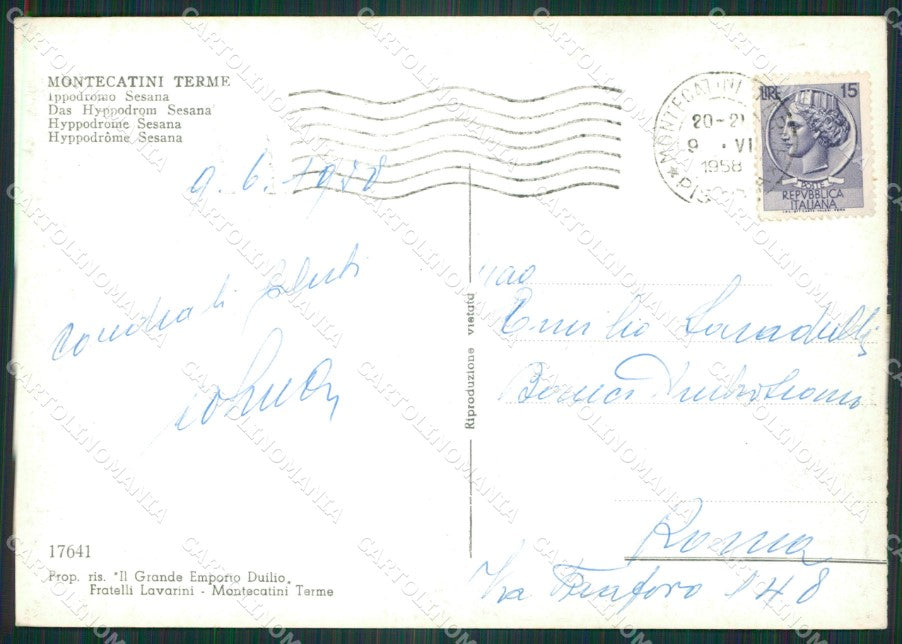 MONTECATINI TERME
Ippodromo Sesana
Das Hyppodrom Sesana
Hyppodrome Sesana
Hyppodrôme Sesana
MONTECATINI
20-21
9 · VI
1958
LIRE 15
POSTE
REPVBBLICA
ITALIANA
9. 6. 1958
Cordiali saluti
Riproduzione vietata
Emilio
Banca
Roma
Via 148
17641
Prop. ris. "Il Grande Emporio Duilio"
Fratelli Lavarini - Montecatini Terme
CARTOLINOMANIA